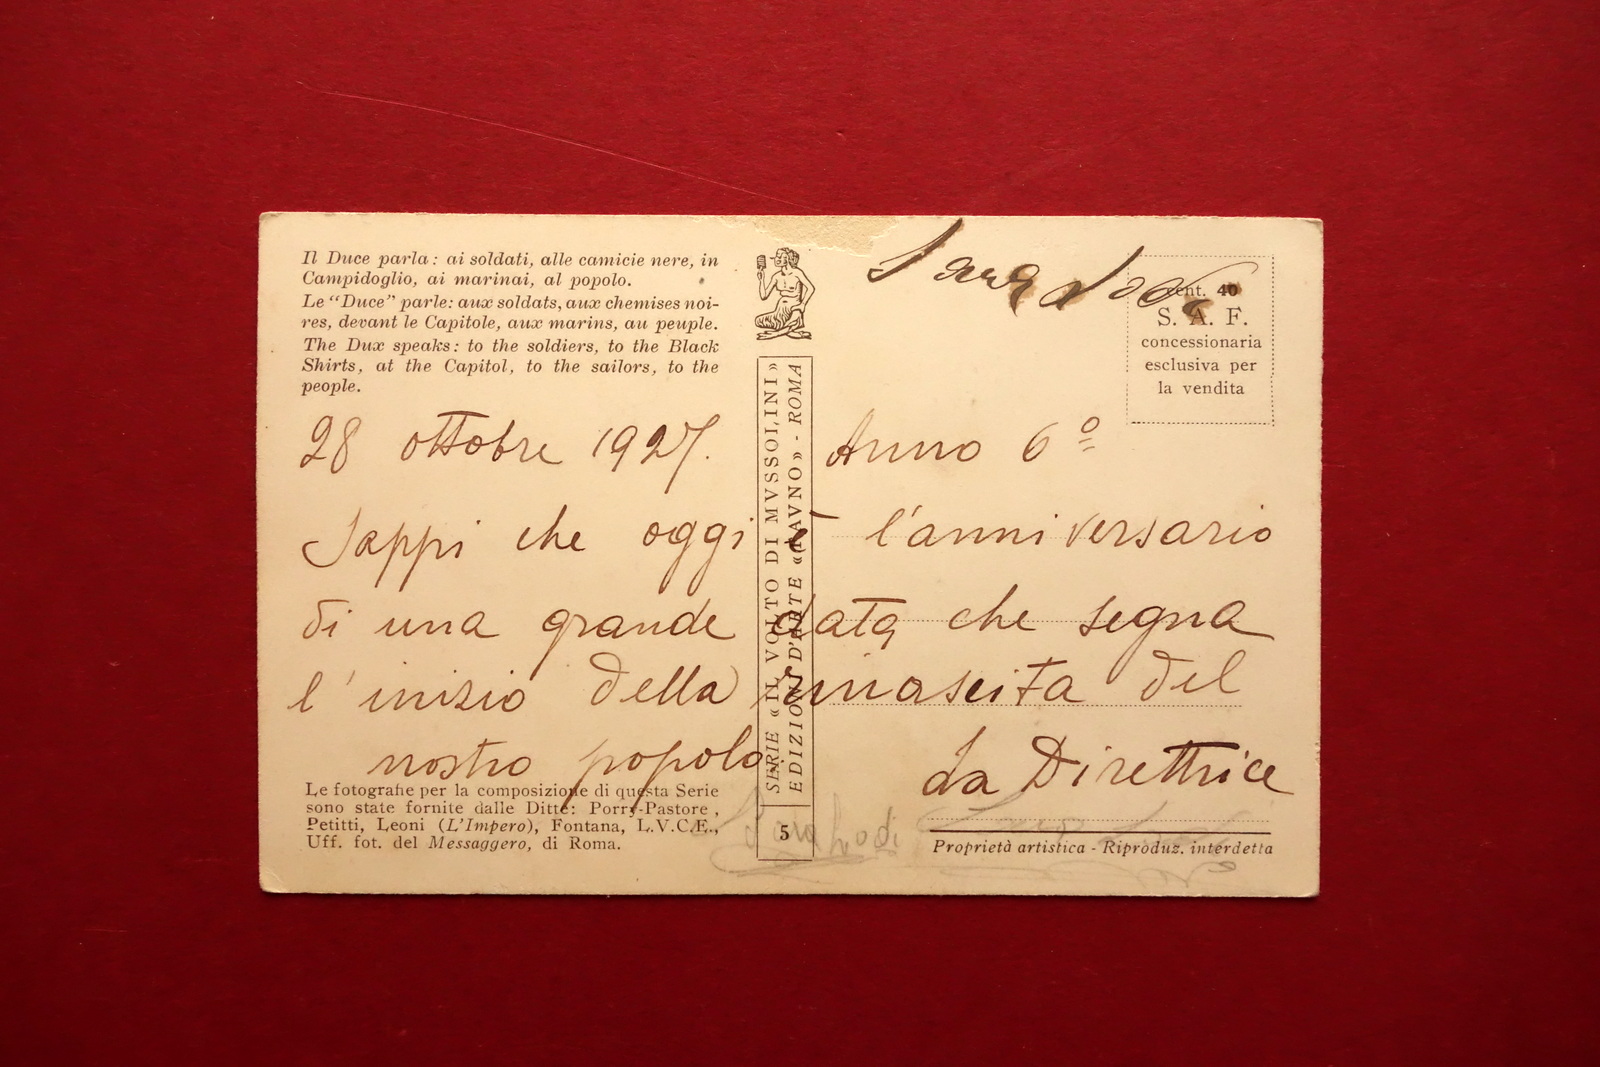 Il Duce parla: ai soldati, alle camicie nere, in
Campidoglio, ai marinai, al popolo.
Le “Duce” parle: aux soldats, aux chemises noi-
res, devant le Capitole, aux marins, au peuple.
The Dux speaks: to the soldiers, to the Black
Shirts, at the Capitol, to the sailors, to the
people.
cent. 40
S. A. F.
concessionaria
esclusiva per
la vendita
28 ottobre 1927. Anno 6º
Sappi che oggi è l'anniversario
di una grande data che segna
l'inizio della rinascita del
nostro popolo
La Direttrice
SERIE «IL VOLTO DI MVSSOLINI»
EDIZIONI D'ARTE «FAVNO» - ROMA
5
Le fotografie per la composizione di questa Serie
sono state fornite dalle Ditte: Porry-Pastore,
Petitti, Leoni (L'Impero), Fontana, L.V.C.E.,
Uff. fot. del Messaggero, di Roma.
Proprietà artistica - Riproduz. interdetta